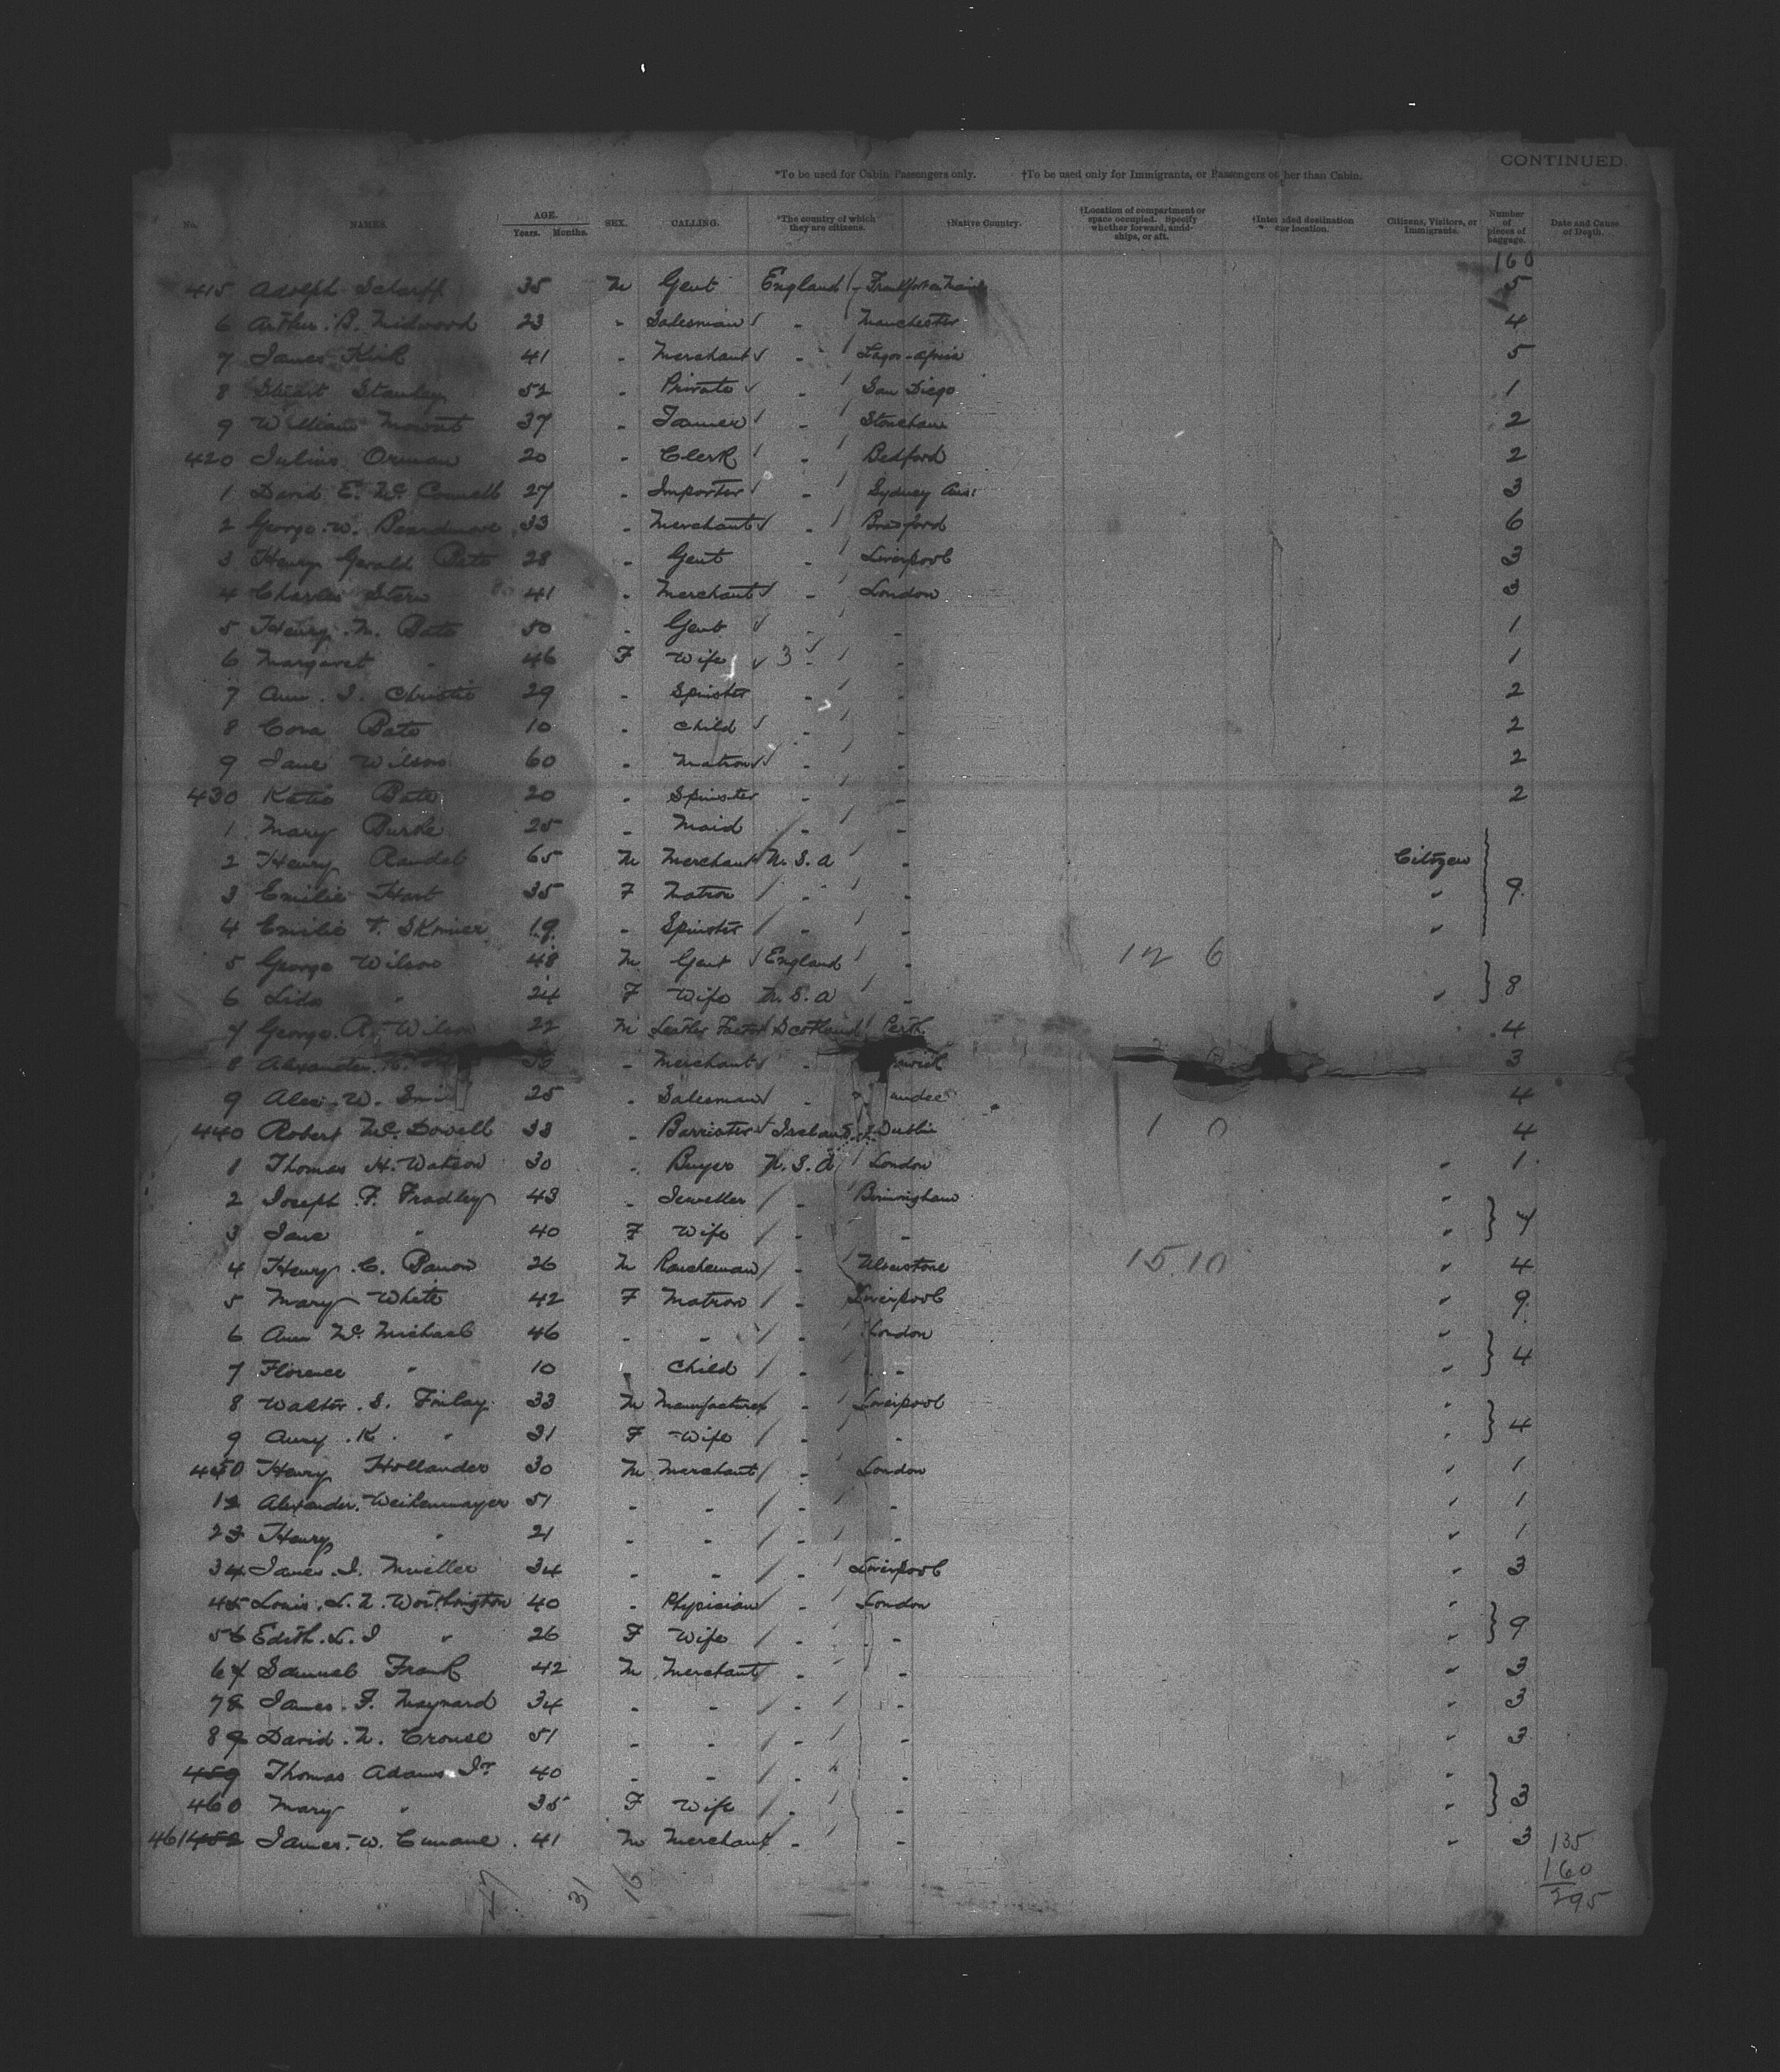 CONTINUED.
*To be used for Cabin Passengers only. †To be used only for Immigrants, or Passengers other than Cabin.
No. NAMES. AGE. Years. Months. SEX. CALLING. *The country of which they are citizens. †Native Country. †Location of compartment or space occupied. Specify whether forward, amidships, or aft. †Intended destination or location. Citizens, Visitors, or Immigrants. Number of pieces of baggage. Date and Cause of Death.
160
415 Adolph Scharff 35 M Gent England Frankfort on Main 5
6 Arthur B. Midwood 23 " Salesman " Manchester 4
7 James Kirk 41 " Merchant " Lagos - Africa 5
8 Stuart Stanley 52 " Private " San Diego 1
9 William Mowat 37 " " 2
420 Julius Orman 20 " Clerk " Bedford 2
1 David E. McConnell 27 " Importer " Sydney Aus: 3
2 George W. Beardmore 33 " Merchant " Bradford 6
3 Henry Gerald Bate 28 " Gent " Liverpool 3
4 Charles Stern 41 " Merchant " London 3
5 Henry N. Bate 50 " Gent " " 1
6 Margaret " 46 F Wife 3 " " 1
7 Ann I. Christie 29 " Spinster " " 2
8 Cora Bate 10 " Child " " 2
9 Jane Wilson 60 " Matron " " 2
430 Katie Bate 20 " Spinster " " 2
1 Mary Burke 25 " Maid " "
2 Henry Randel 65 M Merchant U.S.A " Citizen
3 Emilie Hart 35 F Matron " " " 9
4 Emilie T. Skinner 19 " Spinster " " "
5 George Wilson 48 M Gent England " 12 6
6 Lida " 24 F Wife U.S.A " " 8
7 George R. Wilson 22 M Leather Factor Scotland Perth 4
8 Alexander " Merchant " 3
9 Alex. W. 25 " Salesman " 4
440 Robert McDovell 33 " Barrister Ireland Dublin 1 0 4
1 Thomas H. Watson 30 " Buyer U.S.A London " 1
2 Joseph F. Fradley 43 " Jeweller " Birmingham "
3 Jane " 40 F Wife " " " 7
4 Henry C. Barrow 26 M Rancheman " Ulverstone 15.10 " 4
5 Mary White 42 F Matron " Liverpool " 9
6 Ann McMichael 46 " " " London "
7 Florence " 10 " Child " " " 4
8 Walter S. Finlay 33 M Manufacturer " Liverpool "
9 Amy K. " 31 F Wife " " " 4
450 Henry Hollander 30 M Merchant " London " 1
1 Alexander Weihenmayer 51 " " " " " 1
2 Henry " 21 " " " " " 1
3 James I. Mueller 34 " " " Liverpool " 3
4 Louis L. N. Worthington 40 " Physician " London "
5 Edith L. I " 26 F Wife " " " 9
6 Samuel Frank 42 M Merchant " " " 3
7 James F. Maynard 34 " " " " " 3
8 David N. Crouse 51 " " " " " 3
459 Thomas Adams Jr 40 " " " " "
460 Mary " 35 F Wife " " " 3
461 James W. Cunane 41 M Merchant " " " 3 135
47 31 16 160
295